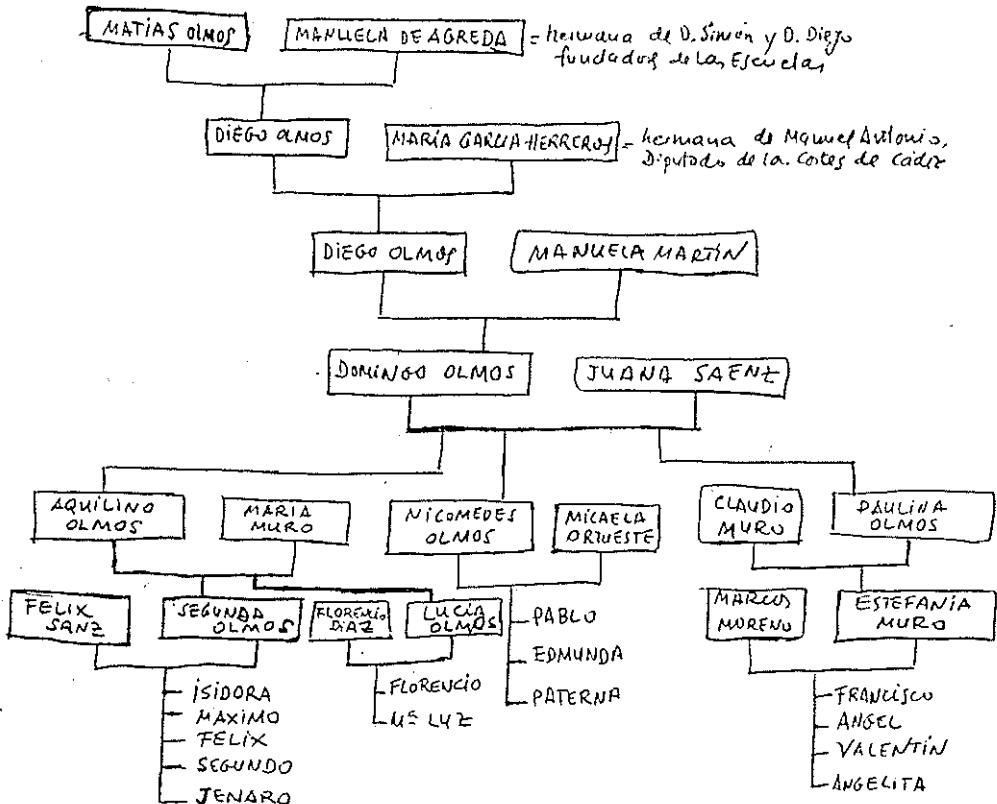 MATÍAS OLMOS
MANUELA DE AGREDA = hermana de D. Simón y D. Diego
fundadores de las Escuelas
DIEGO OLMOS
MARÍA GARCIA-HERREROS = hermana de Manuel Antonio,
Diputado de la. Cortes de Cádiz
DIEGO OLMOS
MANUELA MARTÍN
DOMINGO OLMOS
JUANA SAENZ
AQUILINO
OLMOS
MARIA
MURO
NICOMEDES
OLMOS
MICAELA
ORTUESTE
CLAUDIO
MURO
PAULINA
OLMOS
FELIX
SANZ
SEGUNDA
OLMOS
FLORENCIO
DIAZ
LUCÍA
OLMOS
MARCOS
MORENO
ESTEFANÍA
MURO
ISIDORA
MAXIMO
FELIX
SEGUNDO
JENARO
FLORENCIO
Mª LUZ
PABLO
EDMUNDA
PATERNA
FRANCISCO
ANGEL
VALENTÍN
ANGELITA